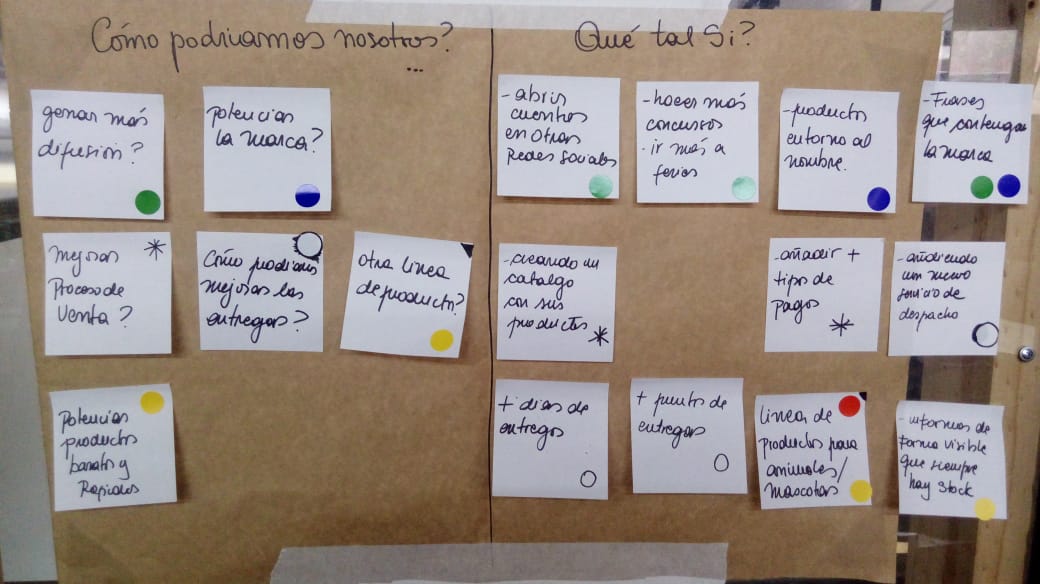 Cómo podriamos nosotros?
...
ganar más
difusión?
potenciar
la marca?
mejorar
Proceso de
Venta?
Cómo podriamos
mejorar las
entregas?
Otra linea
de producto?
Potenciar
productos
baratos y
Rapidos
Qué tal Si?
-abrir
cuentas
en otras
Redes Sociales
-hacer más
concursos
-ir más a
ferias
-productos
entorno al
nombre.
-Frases
que contengan
la marca
-creando un
catalgo
con sus
productos
-añadir +
tipos de
pagos
-añadiendo
un nuevo
servicio de
despacho
+ dias de
entregas
+ puntos de
entregas
linea de
productos para
animales/
mascotas
-informar de
forma visible
que siempre
hay Stock